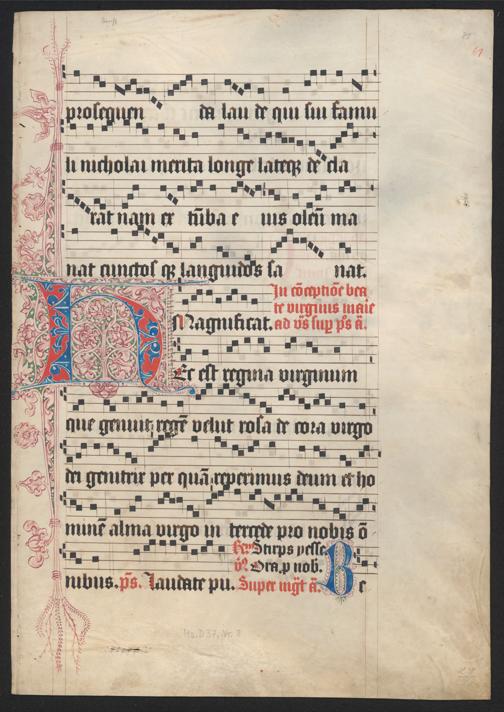 prosequen da lau de qui sui famu
li nicholai merita longe lateqꝫ de cla
rat nam ex tūba e ius oleū ma
nat cunctos qꝫ languidos sa nat.
In cōceptiōe bea
te virginis marie
Magnificat. ad vs̄ sup ps̄ a.
Hec est regina virginum
que genuit regē velut rosa de cora virgo
dei genitrix per quā reperimus deum et ho
minē alma virgo in tercede pro nobis ō
Stirps yesse.
Ora p nob.
nibus. ps. laudate pu. Super mgt a. Be
Ms. D 37, Nr. 8